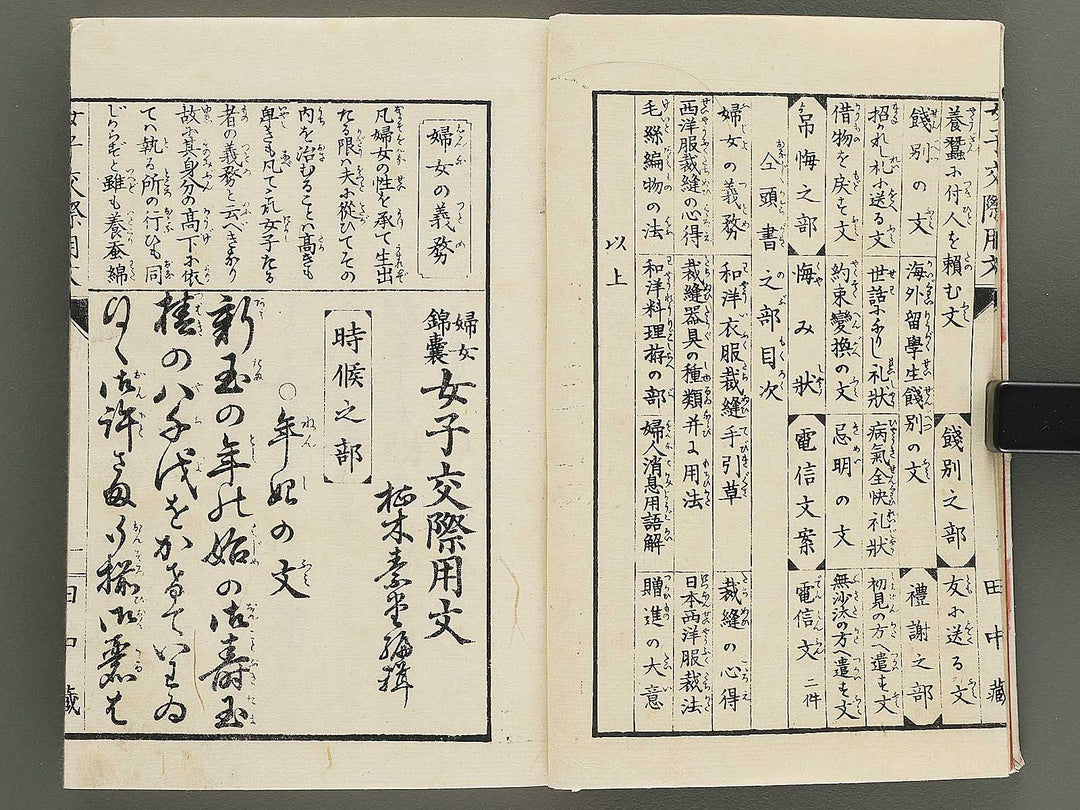 養蚕に付人を頼む文
餞別之部
友に送る文
餞別の文
海外留學生餞別の文
禮謝之部
招かれし礼に送る文
世話になりし礼状
病氣全快礼状
初見の方へ遣す文
借物を戻す文
約束變換の文
忌明の文
無沙汰の方へ遣す文
吊悔之部
悔み状
電信文案
電信文 二件
仝頭書之部目次
婦女の義務
和洋衣服裁縫手引草
裁縫の心得
西洋服裁縫の心得
裁縫器具の種類并に用法
日本西洋服裁法
毛絲編物の法
和洋料理の部
婦人消息用語解
贈進の大意
以上
田中藏
婦女の義務
凡婦女の性を承て生出
たる限ハ夫に從ひてその
内を治むることハ髙きも
卑きも凡て女子たる
者の義務と云べきなり
故に其身分の髙下に依
てハ執る所の行ひも同
じからずと雖も養蚕綿
婦女
錦囊
女子交際用文
素堂編輯
時候之部
○年始の文
新玉の年の始の御壽玉
椿の八千代をかけていわゐ
女子交際用文